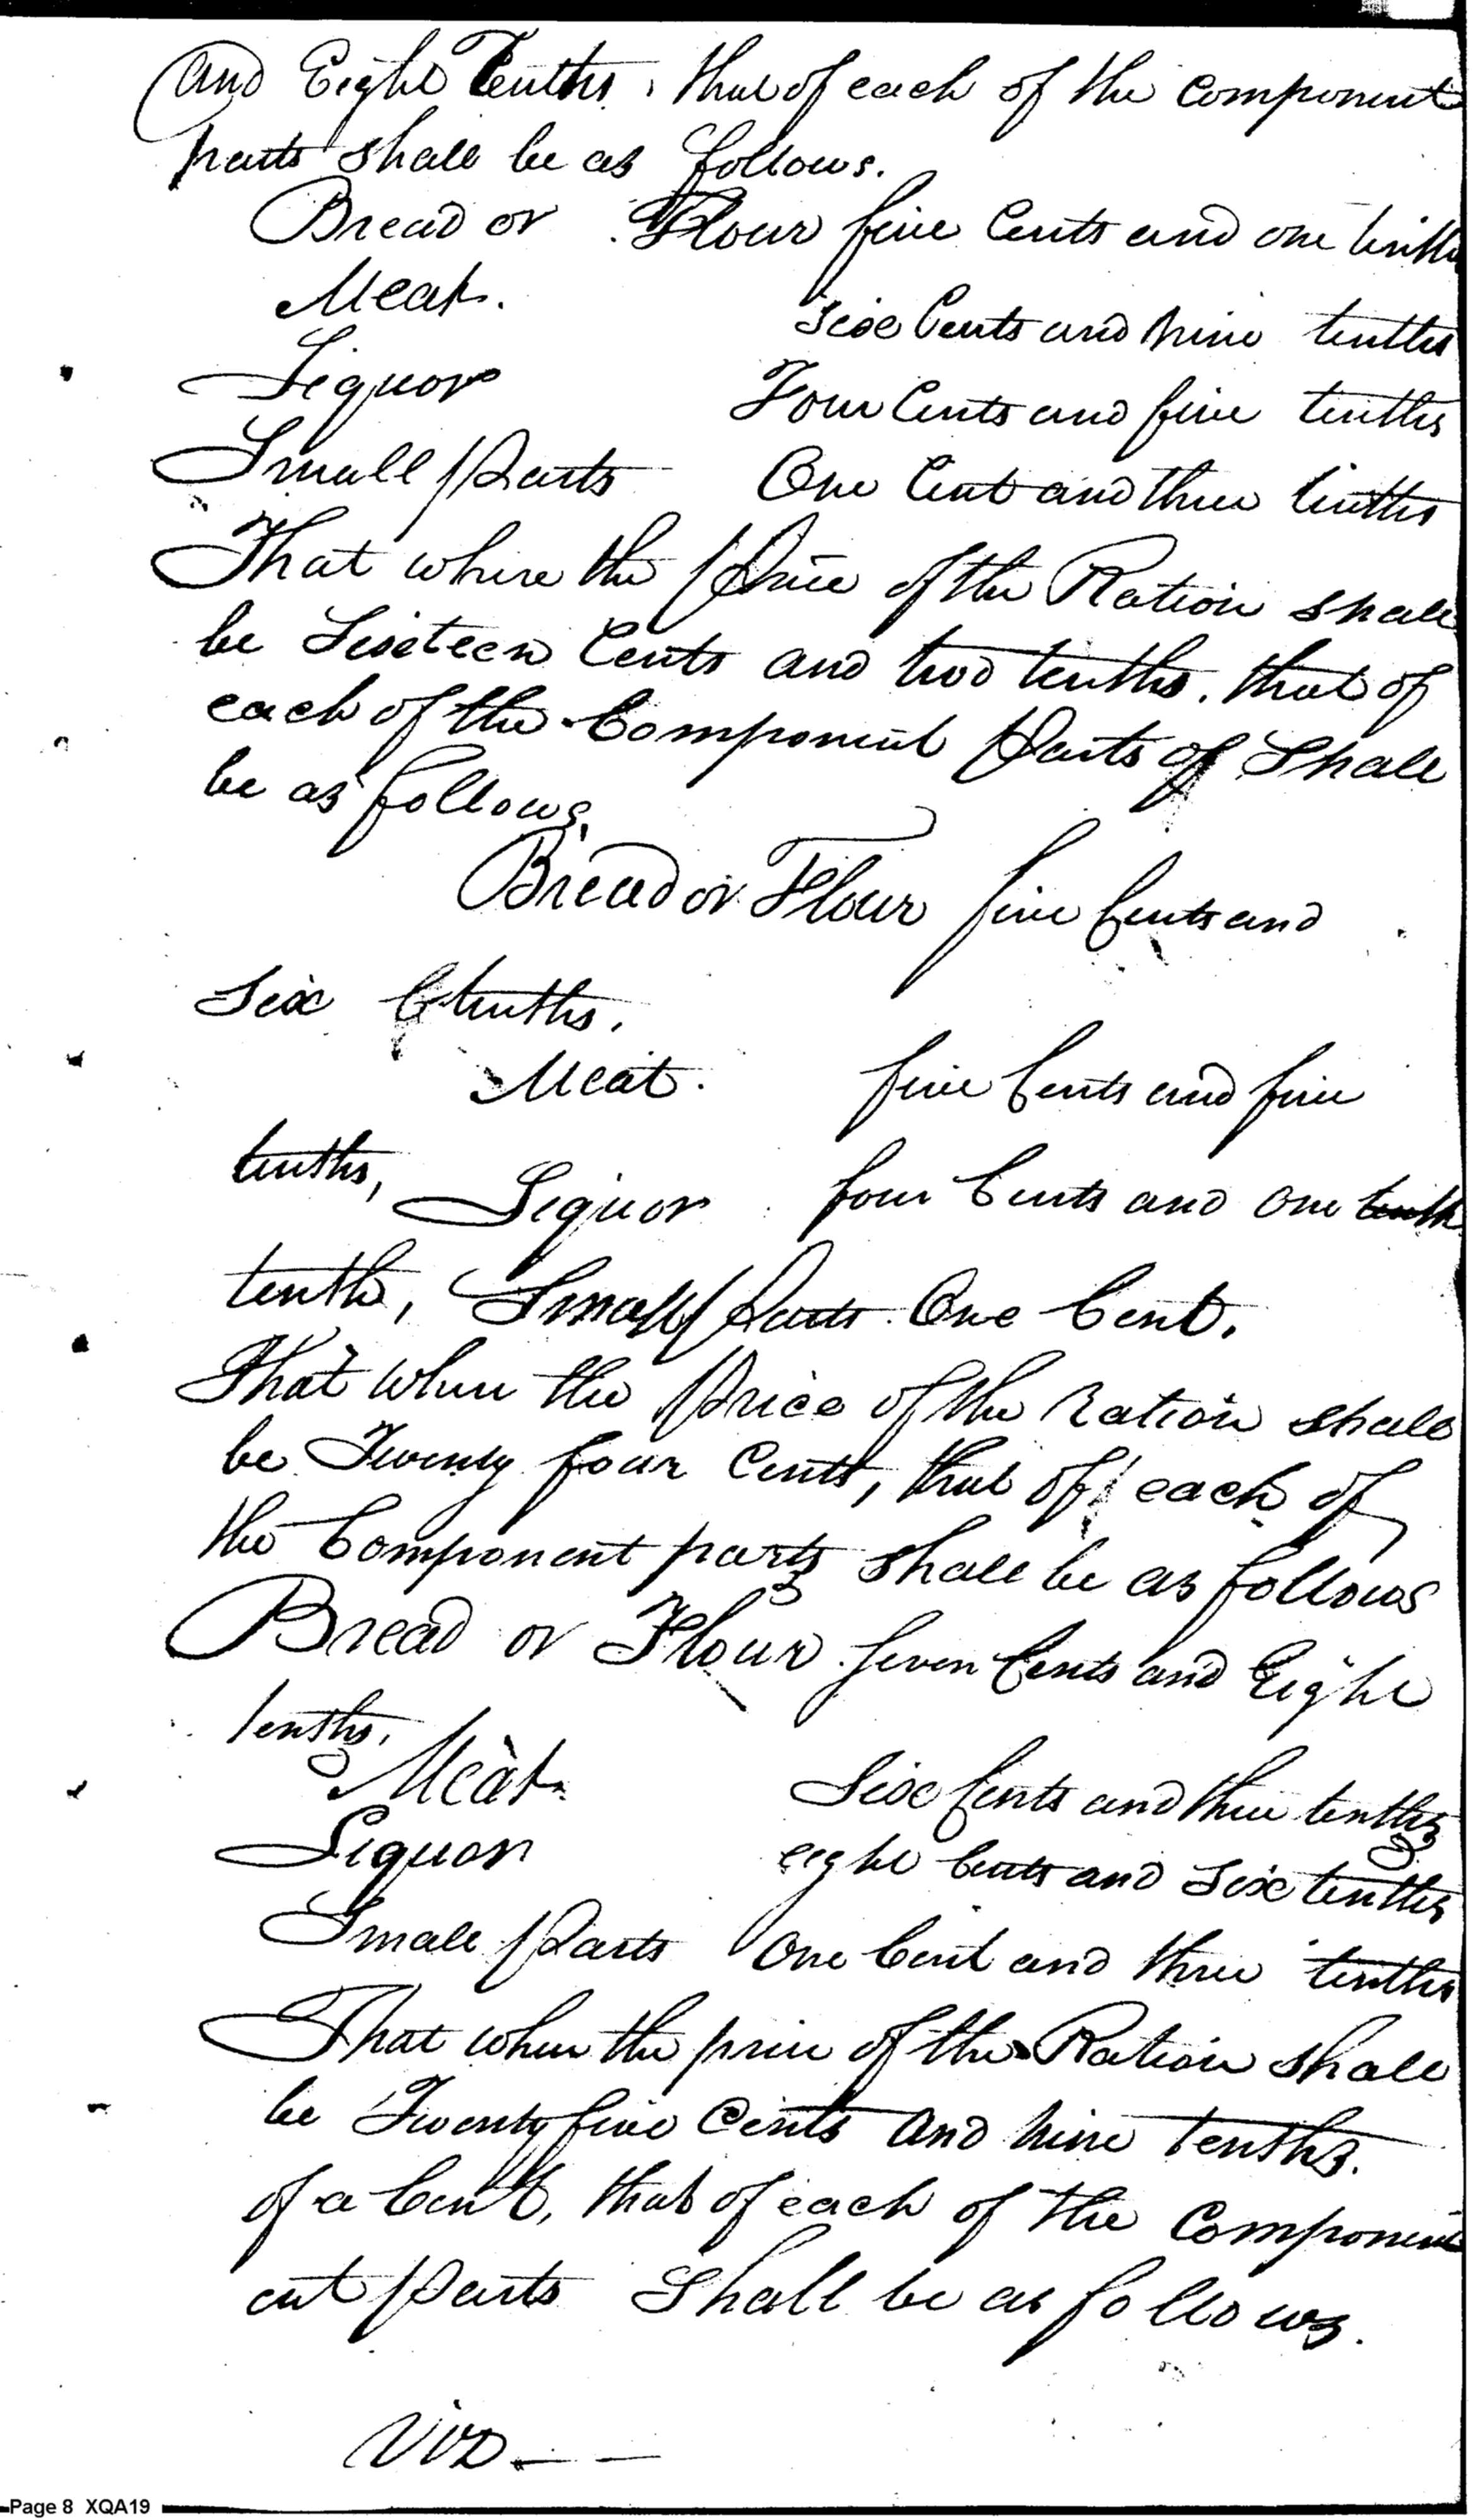 and Eight Tenths, that of each of the component
parts shall be as follows.
Bread or Flour five Cents and one tenth
Meat. Six Cents and nine tenths
Liquor Four Cents and five tenths
Small Parts One Cent and three tenths
That where the Price of the Ration shall
be Sixteen Cents and two tenths. that of
each of the Component Parts of Shall
be as follows,
Bread or Flour five Cents and
Six tenths.
Meat. five Cents and five
tenths,
Liquor four Cents and one tenth
tenth, Small Parts One Cent.
That when the Price of the Ration shall
be Twenty four Cents, that of each of
the Component parts shall be as follows
Bread or Flour Seven Cents and Eight
tenths.
Meat. Six Cents and three tenths
Liquor eight Cents and Six tenths
Small Parts One Cent and three tenths
That when the price of the Ration shall
be Twenty five Cents and nine tenths.
of a Cent, that of each of the Compon
ent Parts Shall be as follows.
Viz — —
Page 8 XQA19